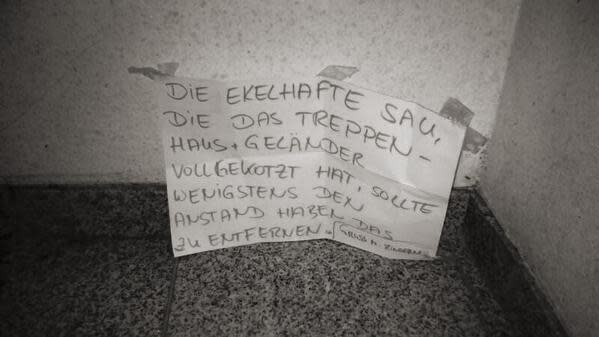 DIE EKELHAFTE SAU,
DIE DAS TREPPEN-
HAUS + GELÄNDER
VOLLGEKOTZT HAT, SOLLTE
WENIGSTENS DEN
ANSTAND HABEN DAS
ZU ENTFERNEN. GRUSS A.